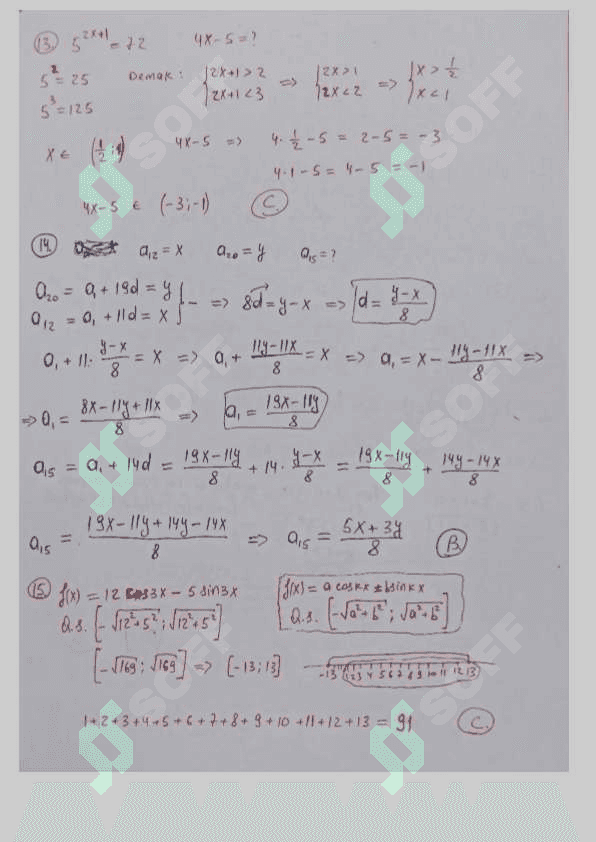 13. 5^{2x+1} = 72    4x-5 = ?
5^2 = 25    Demak: { 2x+1 > 2 => { 2x > 1 => { x > 1/2
5^3 = 125    { 2x+1 < 3    { 2x < 2    { x < 1
x ∈ (1/2; 1)    4x-5 => 4·1/2 - 5 = 2-5 = -3
4·1-5 = 4-5 = -1
4x-5 ∈ (-3; -1)    C.
14. a12 = x    a20 = y    a15 = ?
a20 = a1 + 19d = y } - => 8d = y-x => d = (y-x)/8
a12 = a1 + 11d = x
a1 + 11·(y-x)/8 = x => a1 + (11y-11x)/8 = x => a1 = x - (11y-11x)/8 =>
=> a1 = (8x-11y+11x)/8 => a1 = (19x-11y)/8
a15 = a1 + 14d = (19x-11y)/8 + 14·(y-x)/8 = (19x-11y)/8 + (14y-14x)/8
a15 = (19x-11y+14y-14x)/8 => a15 = (5x+3y)/8    B.
15. f(x) = 12 cos3x - 5 sin3x    f(x) = a coskx ± b sinkx
Q.s. [-√(12²+5²); √(12²+5²)]    Q.s. [-√(a²+b²); √(a²+b²)]
[-√169; √169] => [-13; 13]    -13 1 2 3 4 5 6 7 8 9 10 11 12 13
1+2+3+4+5+6+7+8+9+10+11+12+13 = 91    C.
SOFF
SOFF
SOFF
SOFF
SOFF
SOFF